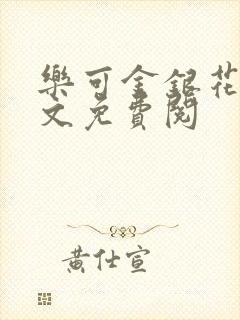 樂可金銀花
文免費閱
黃仕宣